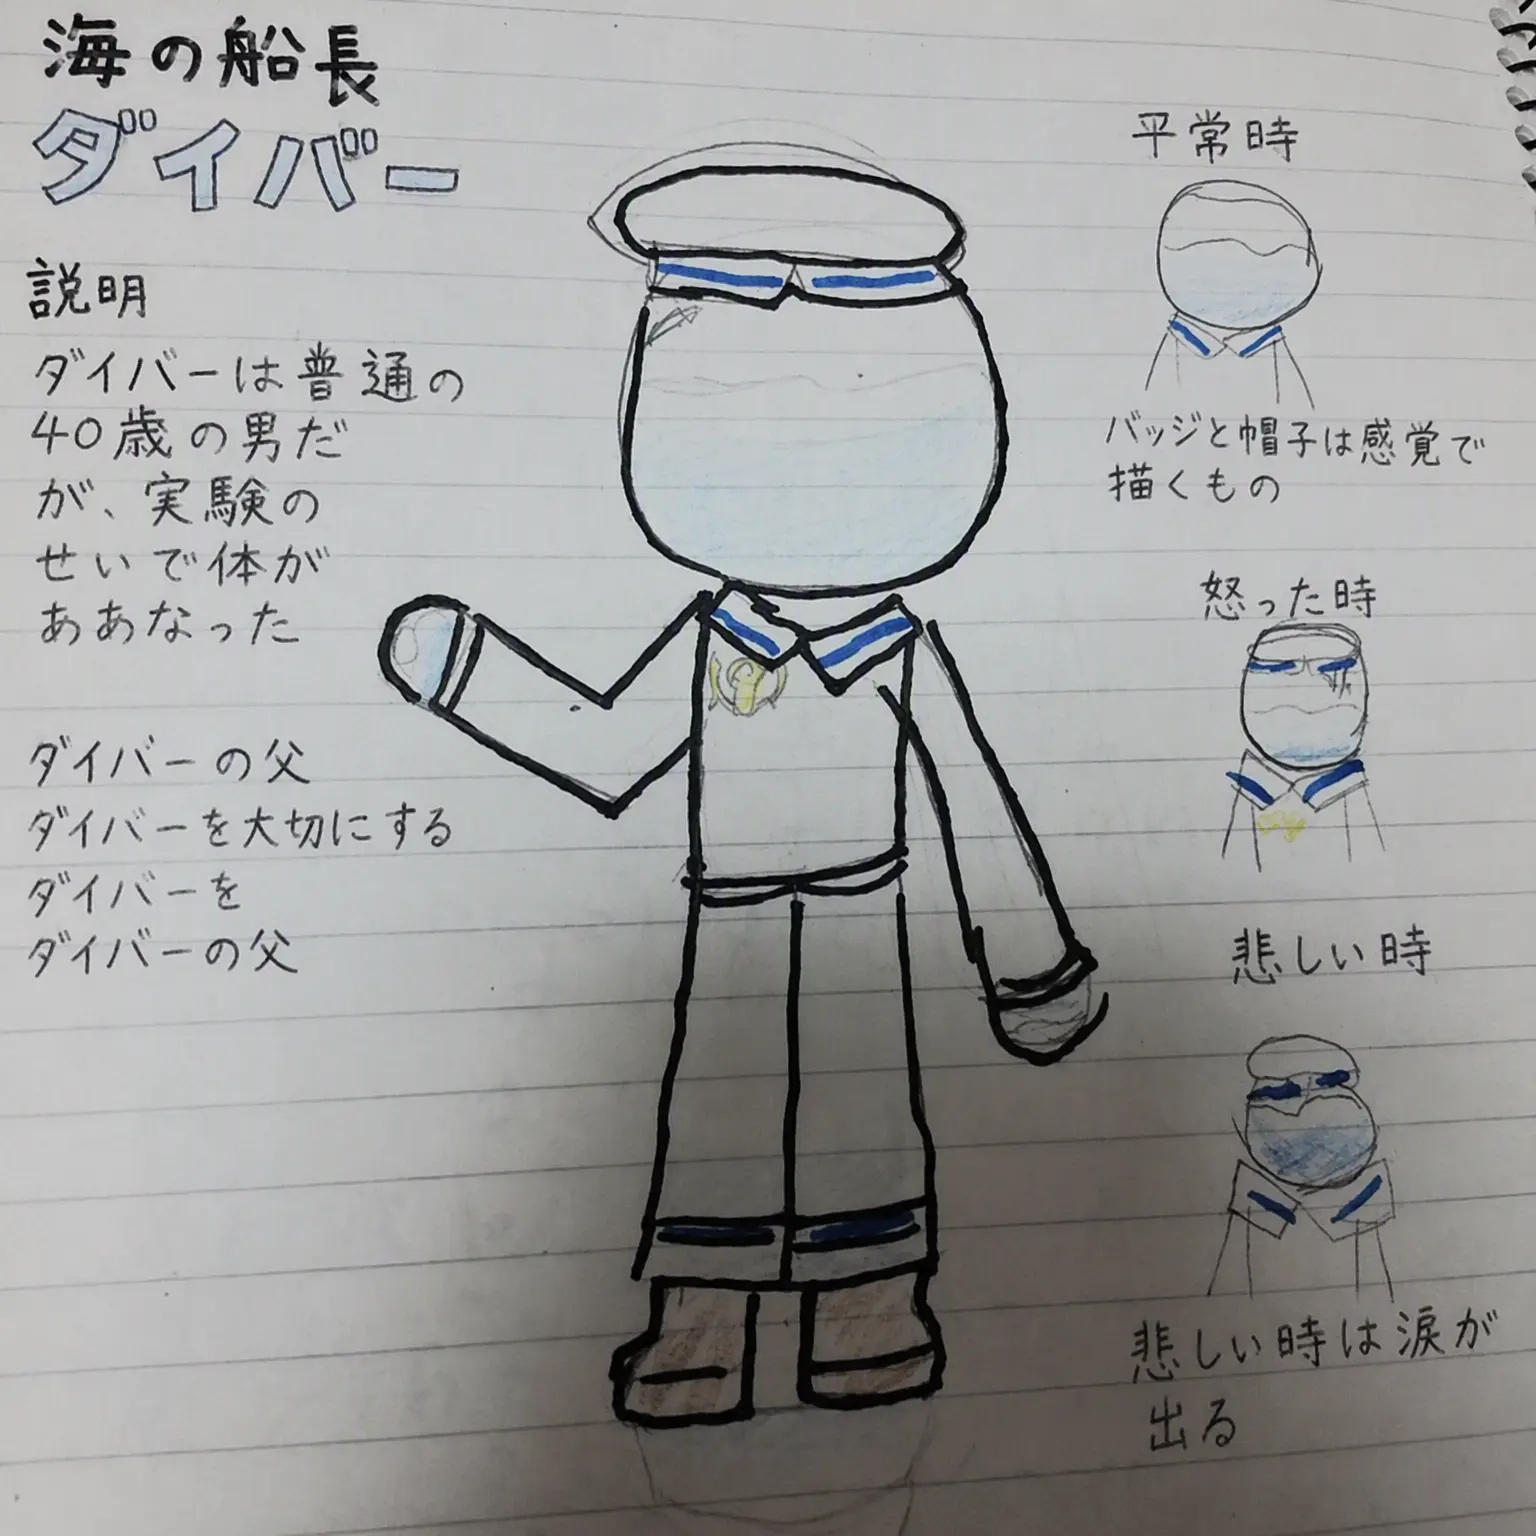 海の船長
ダイバー
説明
ダイバーは普通の
40歳の男だ
が、実験の
せいで体が
ああなった
ダイバーの父
ダイバーを大切にする
ダイバーを
ダイバーの父
平常時
バッジと帽子は感覚で
描くもの
怒った時
悲しい時
悲しい時は涙が
出る